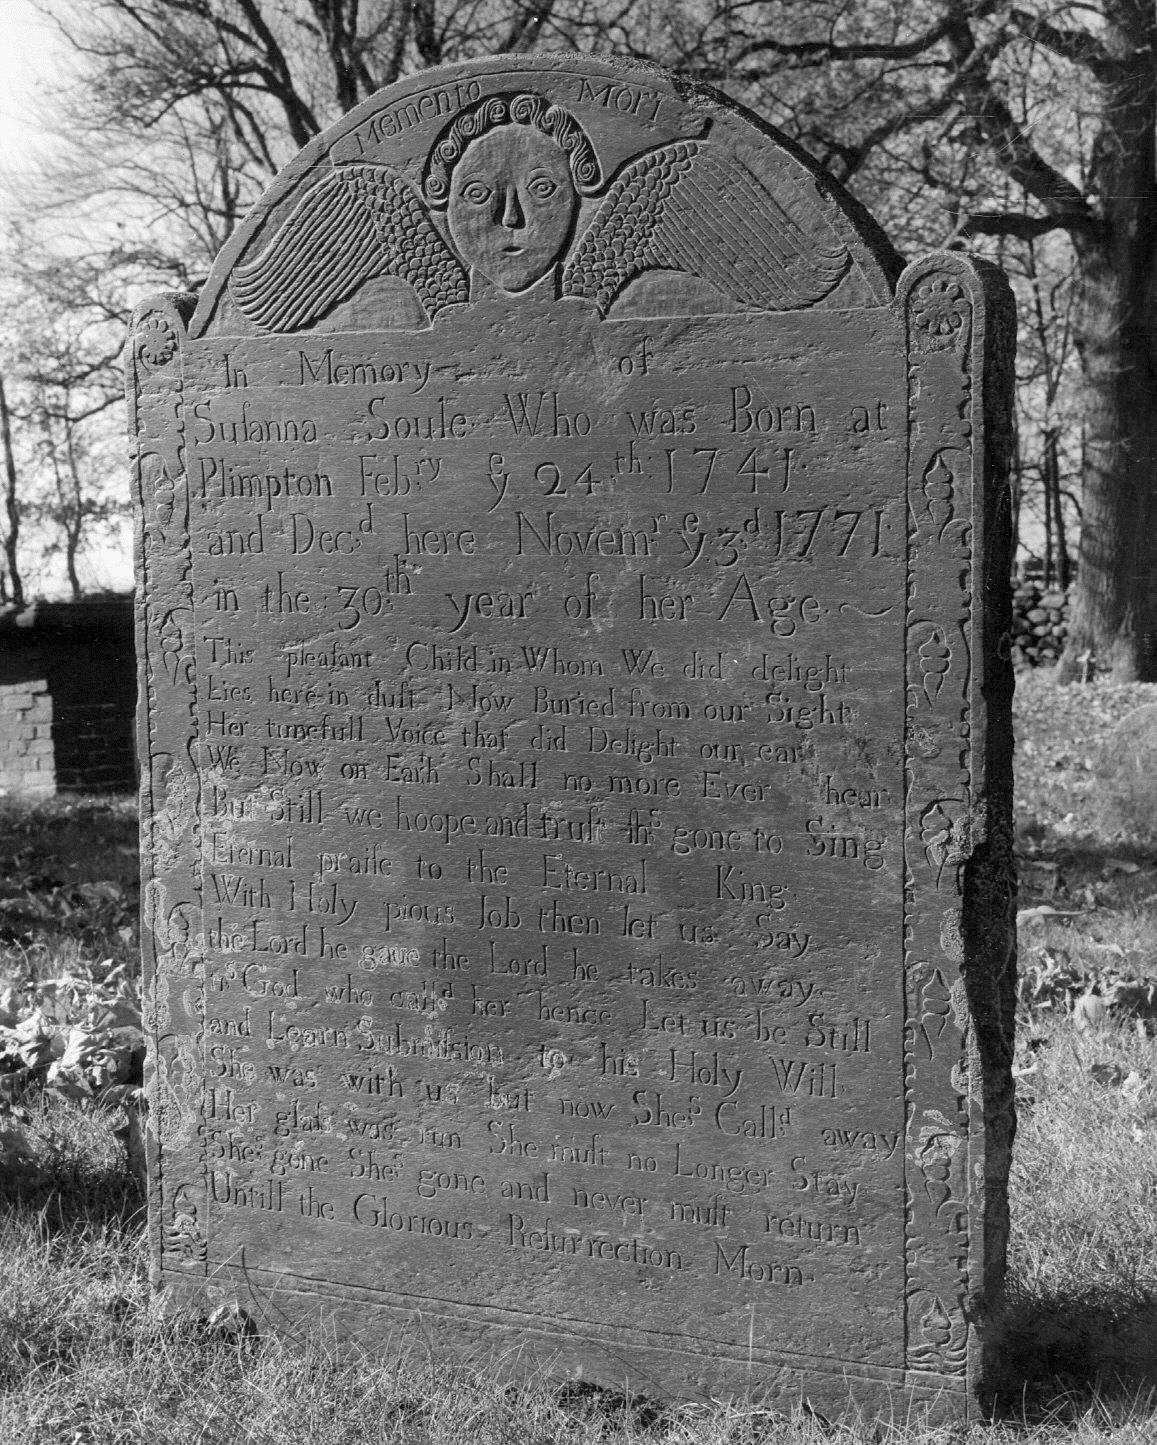 Memento Mori
In Memory of
Suſanna Soule Who was Born at
Plimpton Febry ye 24th 1741
and Decd here Novemr ye 3d 1771
in the 30th year of her Age
This pleaſant Child in Whom We did delight
Lies here in duſt Now Buried from our Sight
Her tunefull Voice that did Delight our ear
We Now on Earh Shall no more Ever hear
But Still we hoope and truſt ſhs gone to Sing
Eternal praiſe to the Eternal King
With Holy pious Job then let us Say
the Lord he gaue the Lord he takes away
ts God who calld her hence Let us be Still
and Learn Submiſsion to his Holy Will
She was with us but now Shes Calld away
Her glaſs was run She muſt no Longer Stay
Shes gone Shes gone and never muſt return
Untill the Glorious Reſurrection Morn